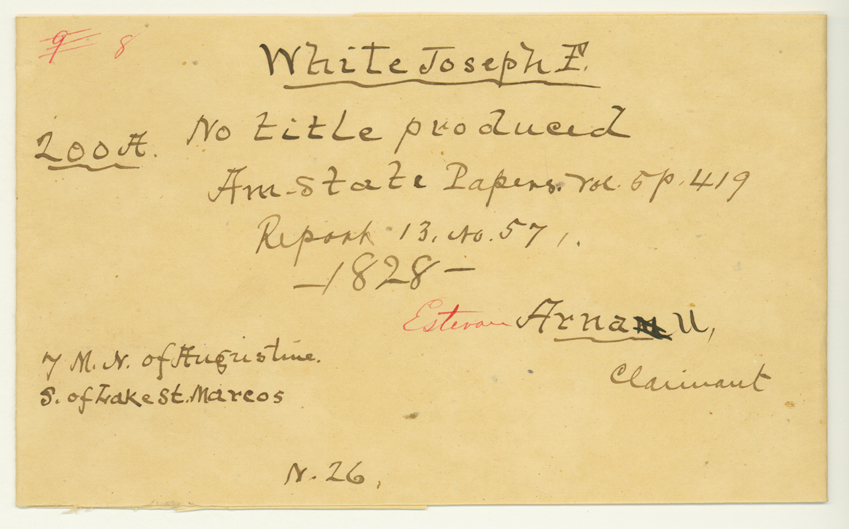 9 8
White Joseph F.
200 A. No title produced
Am. State Papers. Vol. 5 p. 419
Report 13, No. 57,.
—1828—
Estevan Arnau,
7 M. N. of Augustine.
S. of Lake St. Marcos
Claimant
N. 26,